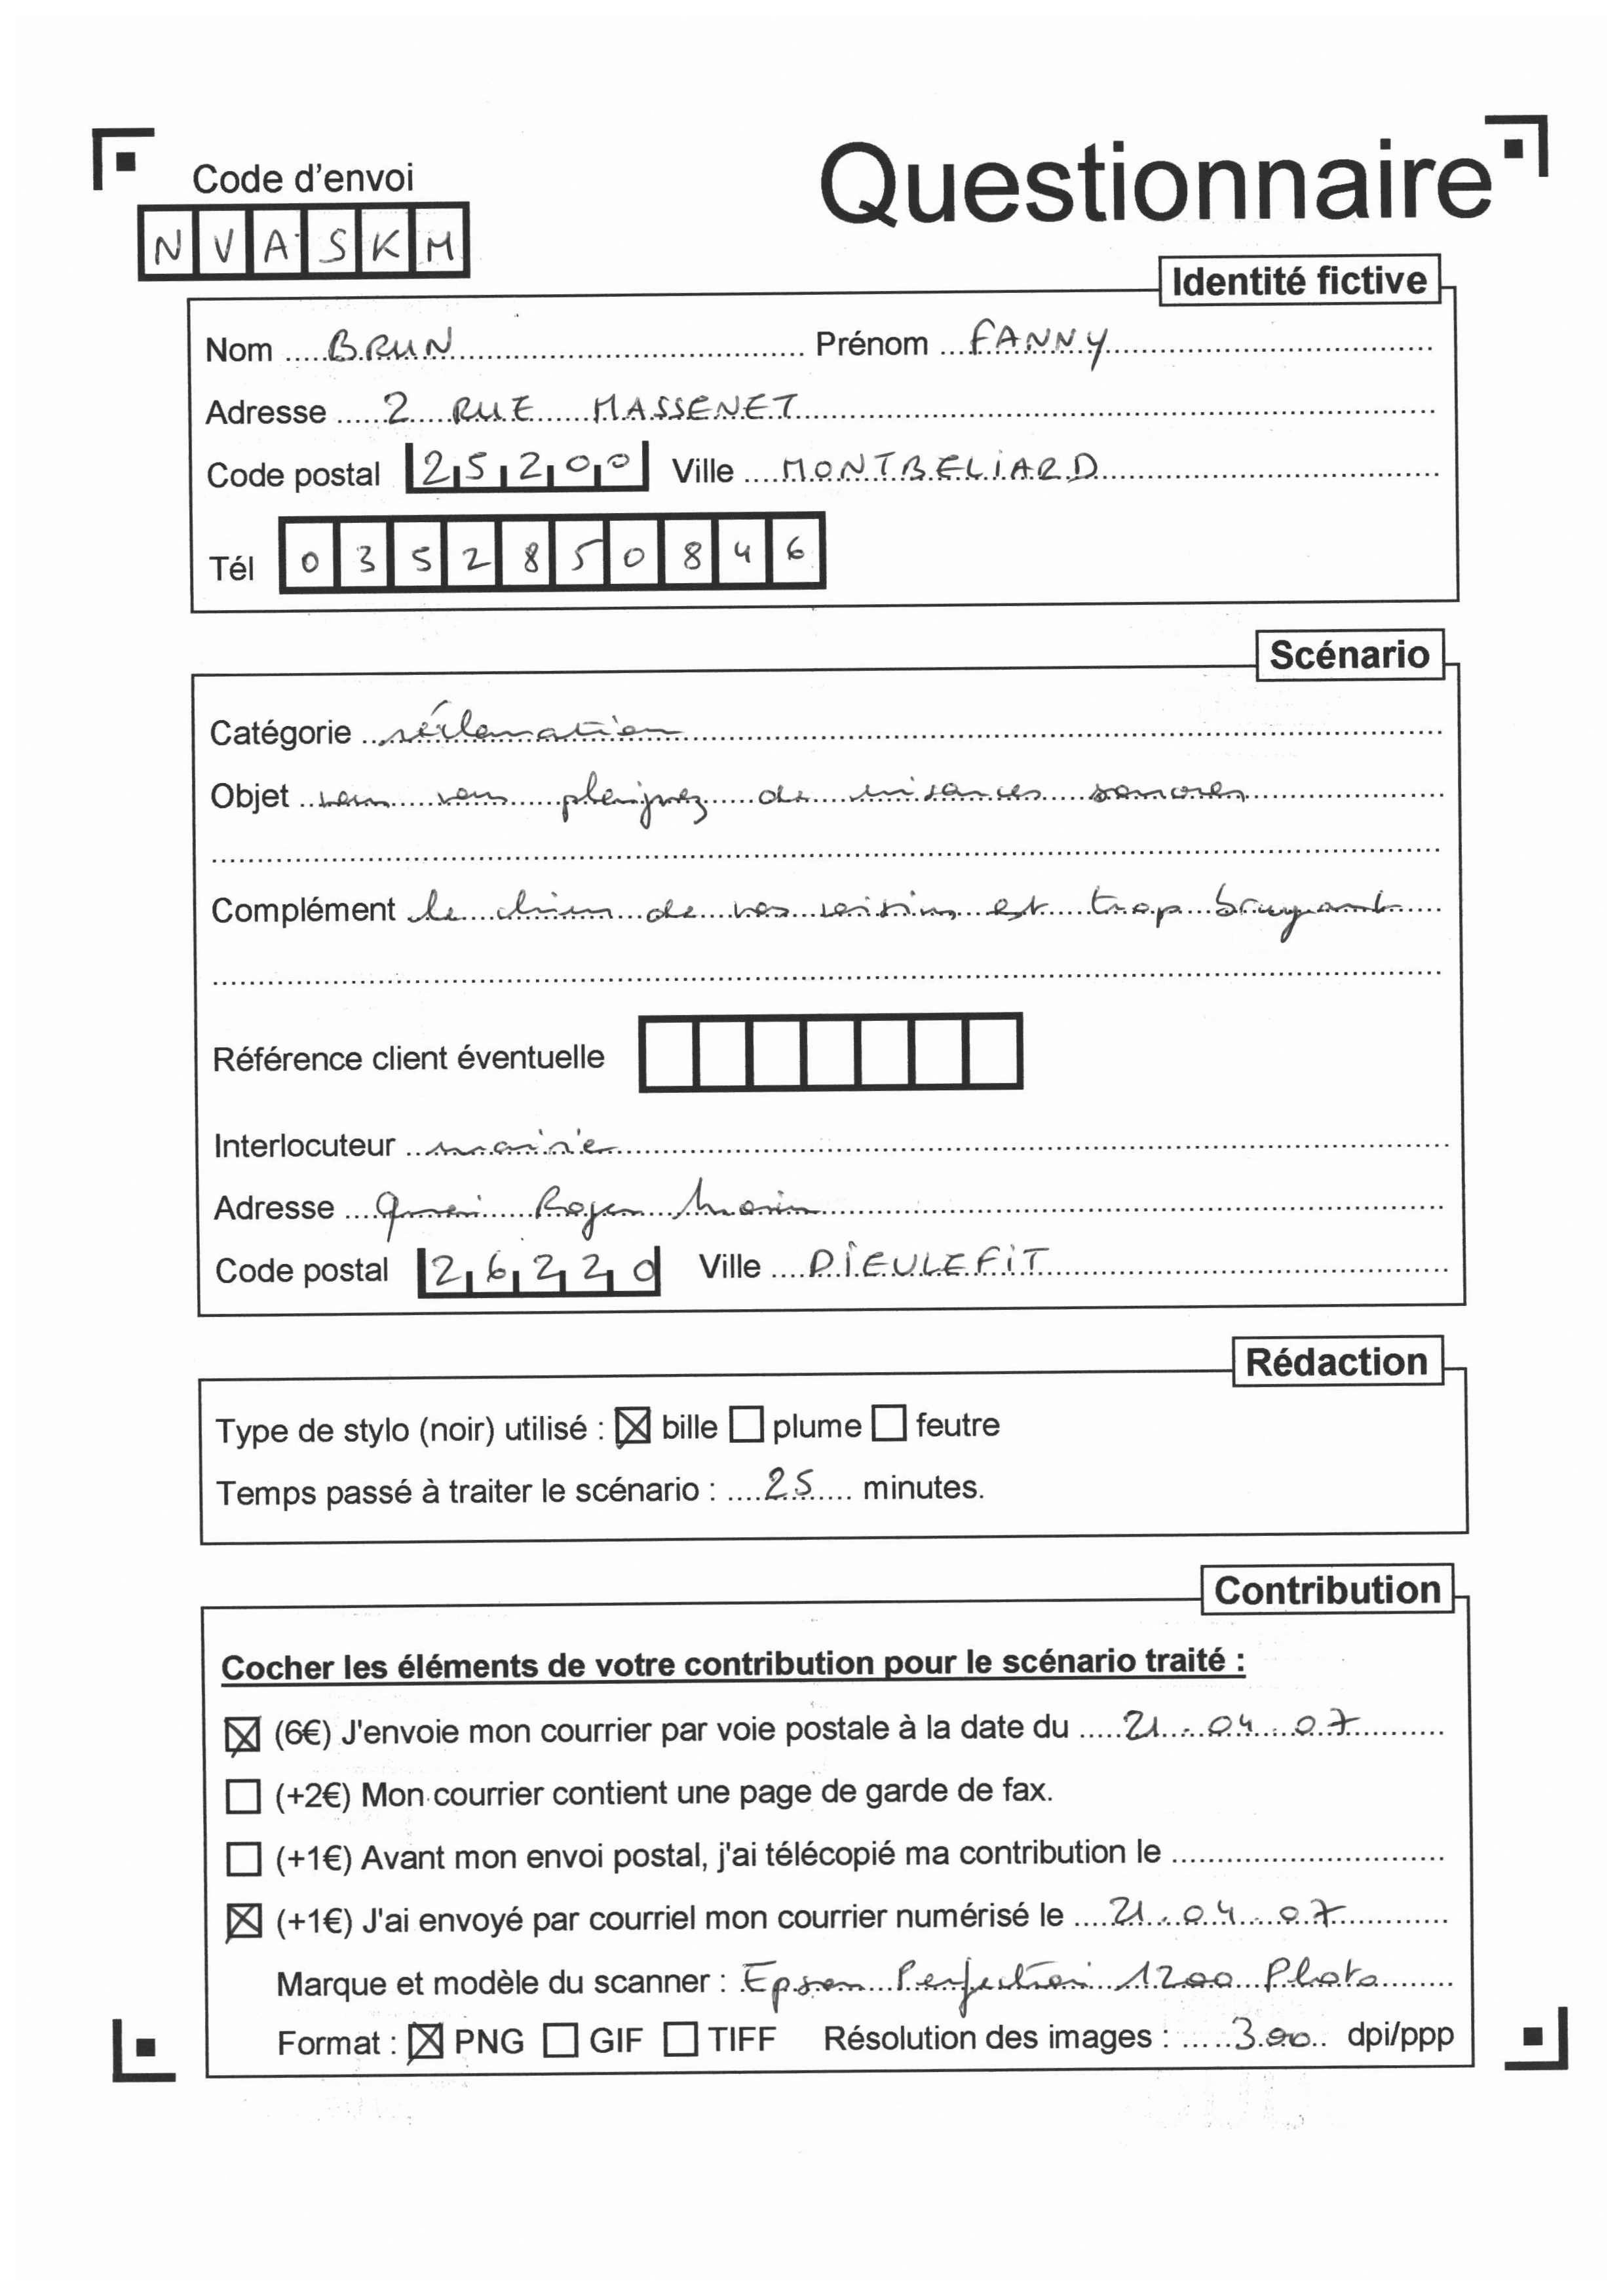 Code d'envoi
Questionnaire
NVASKM
Identité fictive
Nom BRUN Prénom FANNY
Adresse 2 RUE MASSENET
Code postal 25200 Ville MONTBELIARD
Tél 0352850846
Scénario
Catégorie réclamation
Objet vous vous plaignez de nuisances sonores
Complément le chien de vos voisins est trop bruyant
Référence client éventuelle
Interlocuteur mairie
Adresse quai Roger Morin
Code postal 26220 Ville DIEULEFIT
Rédaction
Type de stylo (noir) utilisé : ☒ bille ☐ plume ☐ feutre
Temps passé à traiter le scénario : 25 minutes.
Contribution
Cocher les éléments de votre contribution pour le scénario traité :
☒ (6€) J'envoie mon courrier par voie postale à la date du 21.04.07
☐ (+2€) Mon courrier contient une page de garde de fax.
☐ (+1€) Avant mon envoi postal, j'ai télécopié ma contribution le
☒ (+1€) J'ai envoyé par courriel mon courrier numérisé le 21.04.07
Marque et modèle du scanner : Epson Perfection 1200 Photo
Format : ☒ PNG ☐ GIF ☐ TIFF Résolution des images : 300 dpi/ppp